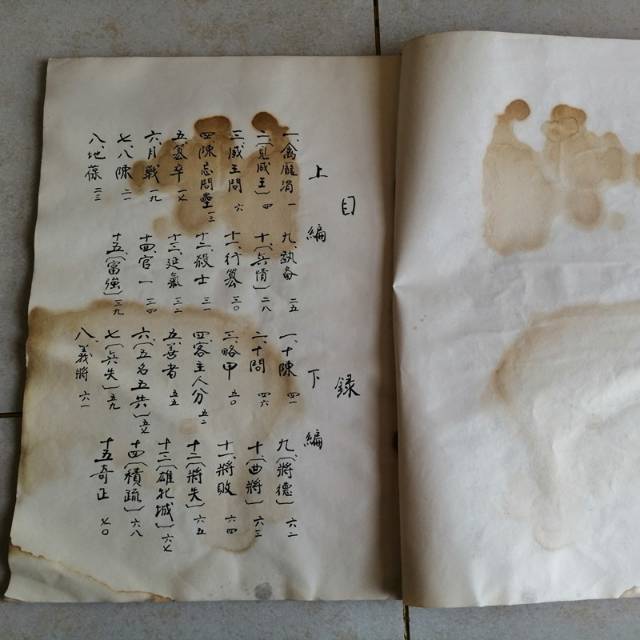 目録
上編
一、禽龐涓 一
二、(見威王) 四
三、威王問 六
四、陳忌問壘 一三
五、篡卒 一七
六、月戰 一九
七、八陳 二一
八、地保 二三
九、勢备 二五
十、(兵情) 二八
十一、行篡 三〇
十二、殺士 三一
十三、延氣 三二
十四、官一 三四
十五、(富強) 三九
下編
一、十陳 四一
二、十問 四六
三、略甲 五〇
四、客主人分 五二
五、善者 五五
六、(五名五共) 五七
七、(兵失) 五九
八、義將 六一
九、(將德) 六二
十、(曲將) 六三
十一、將敗 六四
十二、(將失) 六五
十三、(雄牝城) 六七
十四、(積疏) 六八
十五、奇正 七〇